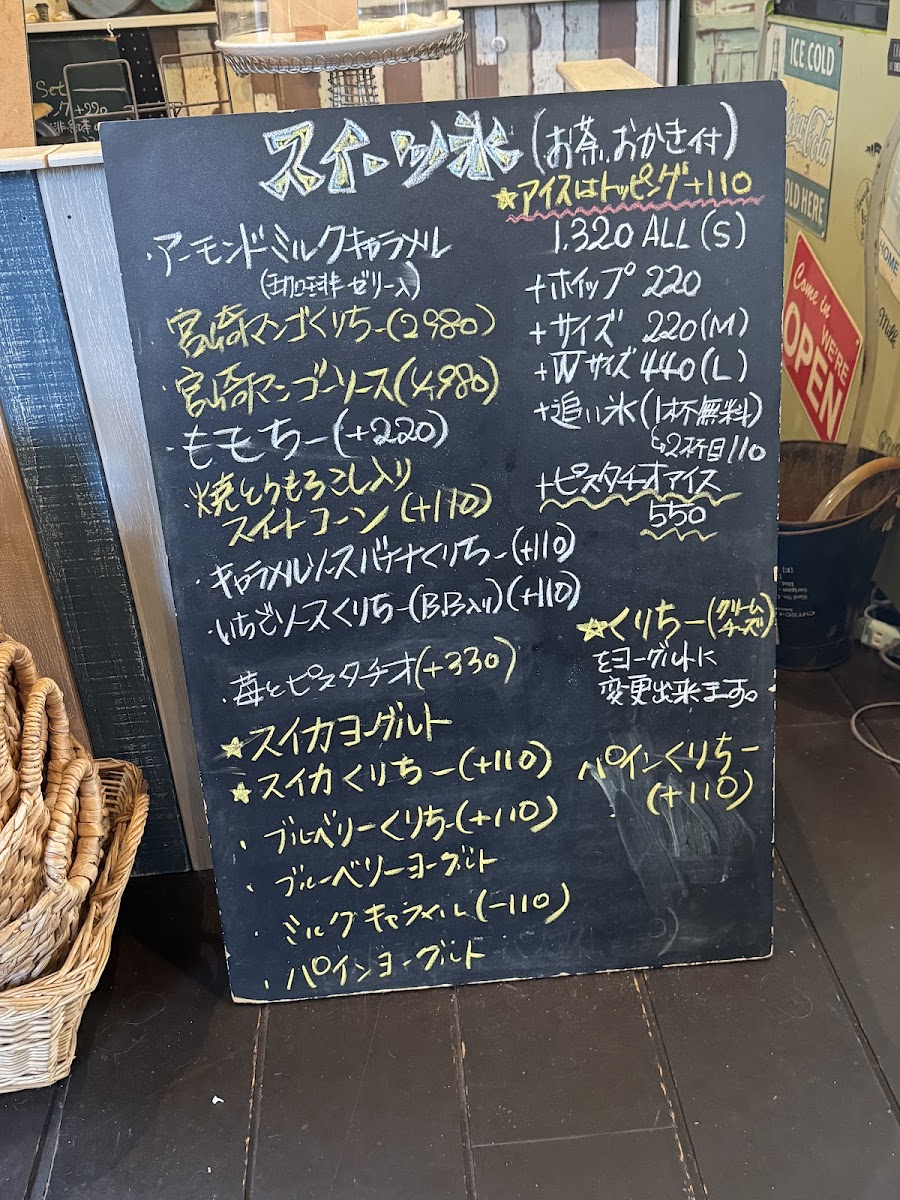 スイーツ氷(お茶、おかき付)
★アイスはトッピング+110
1.320 ALL(S)
+ホイップ 220
+サイズ 220(M)
+Wサイズ 440(L)
+追い氷(1杯無料)
↳2杯目110
+ピスタチオアイス
550
★くりちー(クリームチーズ)
をヨーグルトに
変更出来ます。
パインくりちー
(+110)
・アーモンドミルクキャラメル
(珈琲ゼリー入)
・宮崎マンゴくりちー(2980)
・宮崎マンゴーソース(4,980)
・ももちー(+220)
・焼とうもろこし入り
スイートコーン(+110)
・キャラメルソースバナナくりちー(+110)
・いちごソースくりちー(BB入り)(+110)
・苺とピスタチオ(+330)
★スイカヨーグルト
★スイカくりちー(+110)
・ブルベリーくりちー(+110)
・ブルーベリーヨーグルト
・ミルクキャラメル(-110)
・パインヨーグルト
Set
+220
ICE COLD
Coca-Cola
SOLD HERE
Come in
WE'RE
OPEN
HOME
Milk